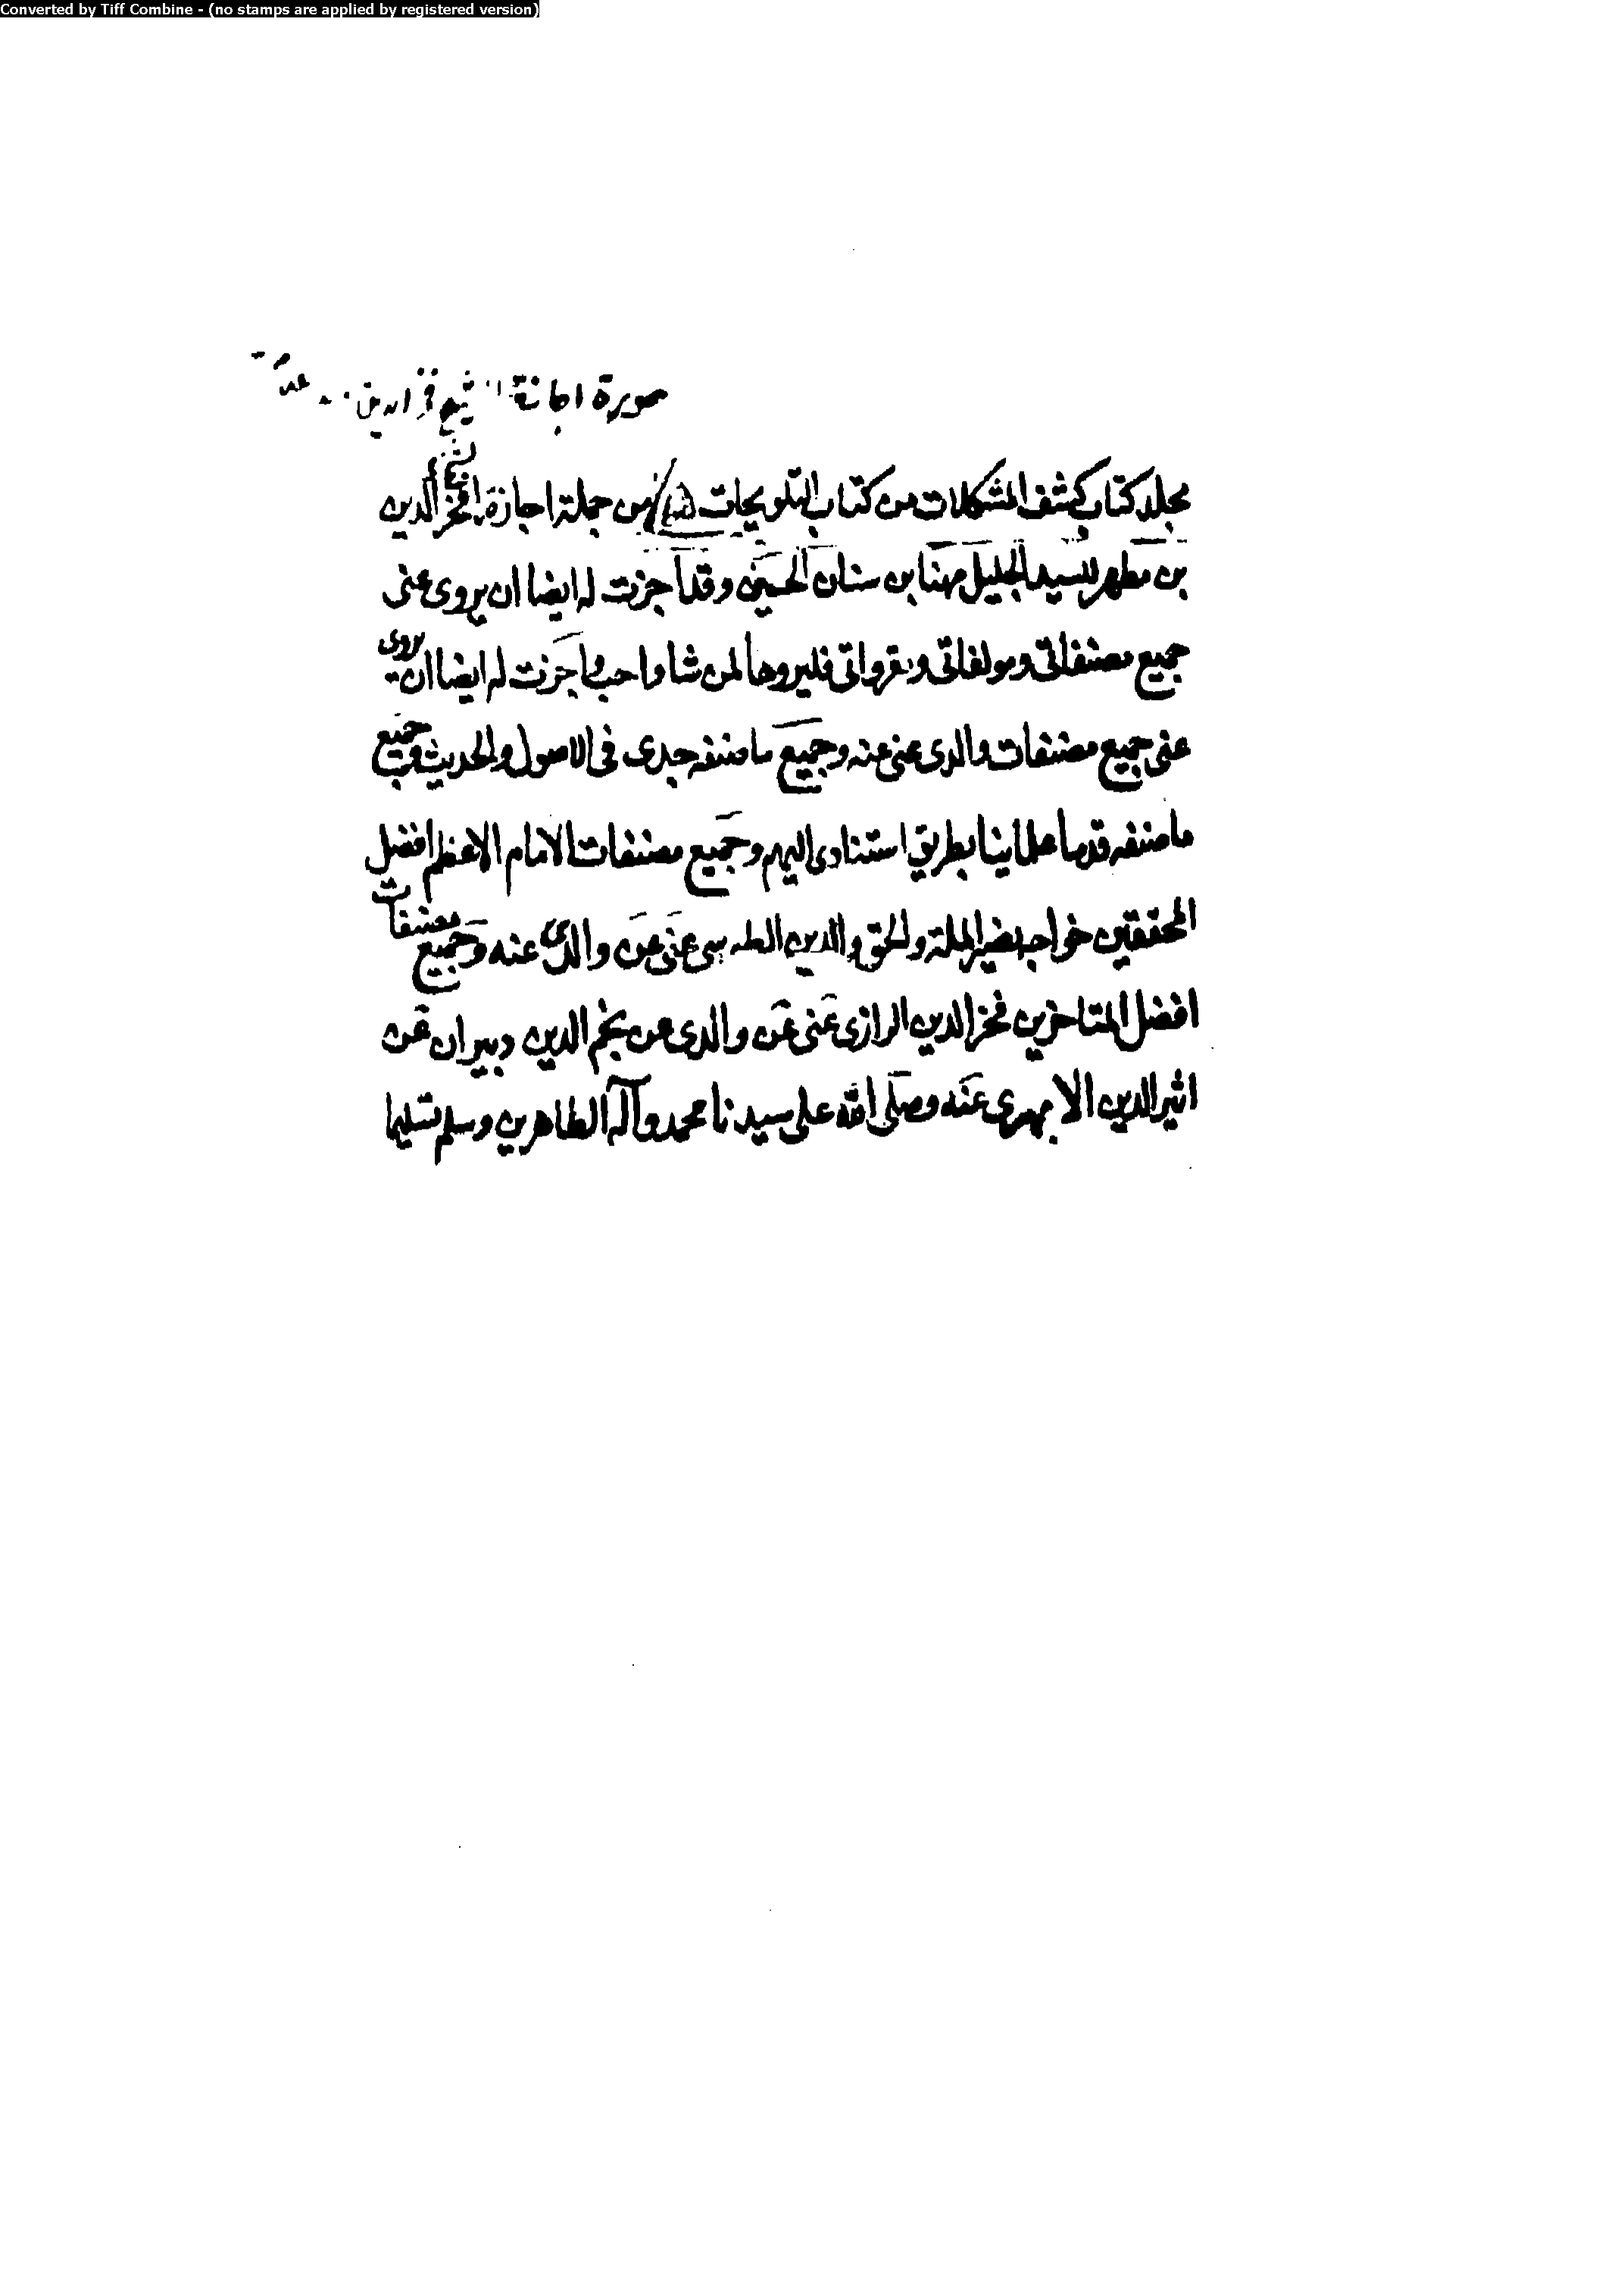 Converted by Tiff Combine - (no stamps are applied by registered version)
صورة اجازة الشيخ فخر الدين
مجلد كتاب كشف المشكلات من كتاب التلويحات من جملة اجازة الشيخ فخر الدين
بن مطهر للسيد الجليل مهنا بن سنان الحسيني وقد اجزت له ايضا ان يروى عنى
جميع مصنفاتى ومولفاتى ومقرواتى فليروها لمن شا واحب واجزت له ايضا ان يروى
عنى جميع مصنفات والدى عنى عنه وجميع ما صنفه جدى فى الاصول والحديث وجميع
ما صنفه قدما علماينا بطريق استنادى اليهم وجميع مصنفات الامام الاعظم افضل
المحققين خواجه نصير الملة والحق والدين الطوسى عنى عن والدى عنه وجميع مصنفات
افضل المتاخرين فخر الدين الرازى عنى عن والدى عن نجم الدين دبيران عن
اثير الدين الابهرى عنه وصلى الله على سيدنا محمد وآله الطاهرين وسلم تسليما